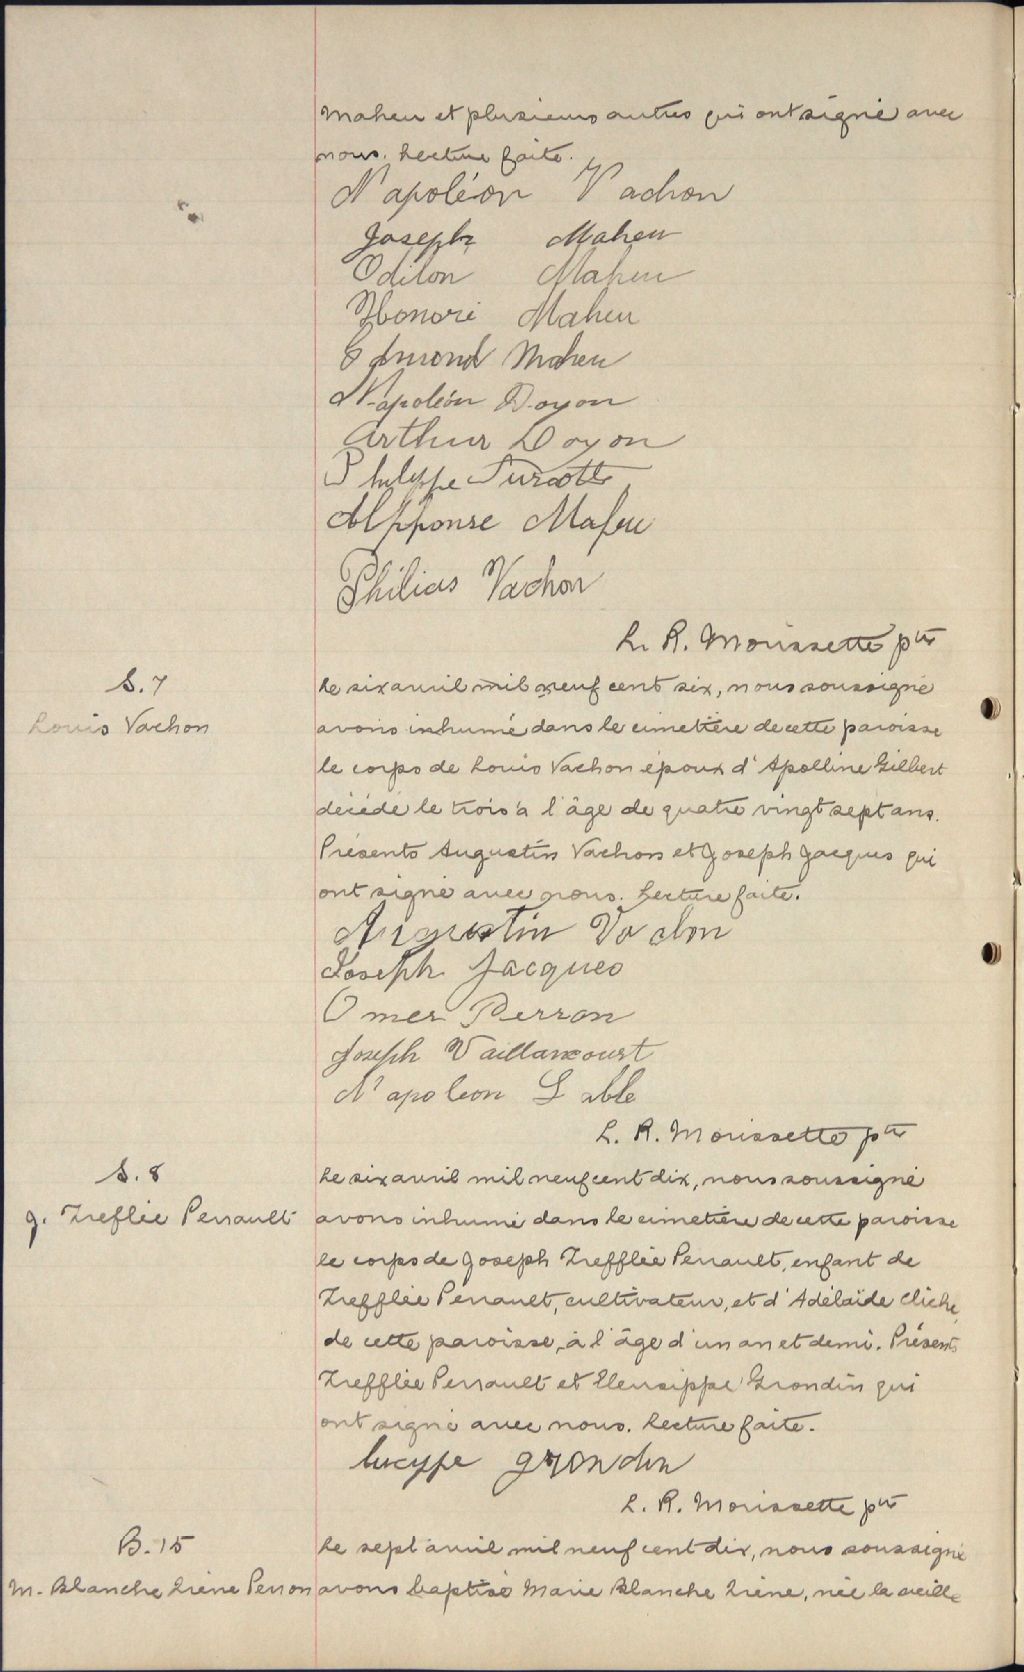 Maheu et plusieurs autres qui ont signé avec
nous. Lecture faite.
Napoléon Vachon
Joseph Maheu
Odilon Maheu
Honoré Maheu
Edmond Maheu
Napoléon Doyon
Arthur Doyon
Philippe Turcotte
Alphonse Maheu
Philias Vachon
L. R. Morissette ptre
S. 7
Louis Vachon
Le six avril mil neuf cent six, nous soussigné
avons inhumé dans le cimetière de cette paroisse
le corps de Louis Vachon époux d'Apolline Gilbert
décédé le trois à l'âge de quatre vingt sept ans.
Présents Augustin Vachon et Joseph Jacques qui
ont signé avec nous. Lecture faite.
Augustin Vachon
Joseph Jacques
Omer Perron
Joseph Vaillancourt
Napoleon Labbe
L. R. Morissette ptre
S. 8
J. Trefflée Perrault
Le six avril mil neuf cent dix, nous soussigné
avons inhumé dans le cimetière de cette paroisse
le corps de Joseph Trefflée Perrault, enfant de
Trefflée Perrault, cultivateur, et d'Adélaïde Cliche,
de cette paroisse, à l'âge d'un an et demi. Présents
Trefflée Perrault et Eleusippe Grondin qui
ont signé avec nous. Lecture faite.
grondin
L. R. Morissette ptre
B. 15
M. Blanche Irène Perron
Le sept avril mil neuf cent dix, nous soussigné
avons baptisé Marie Blanche Irène, née la veille